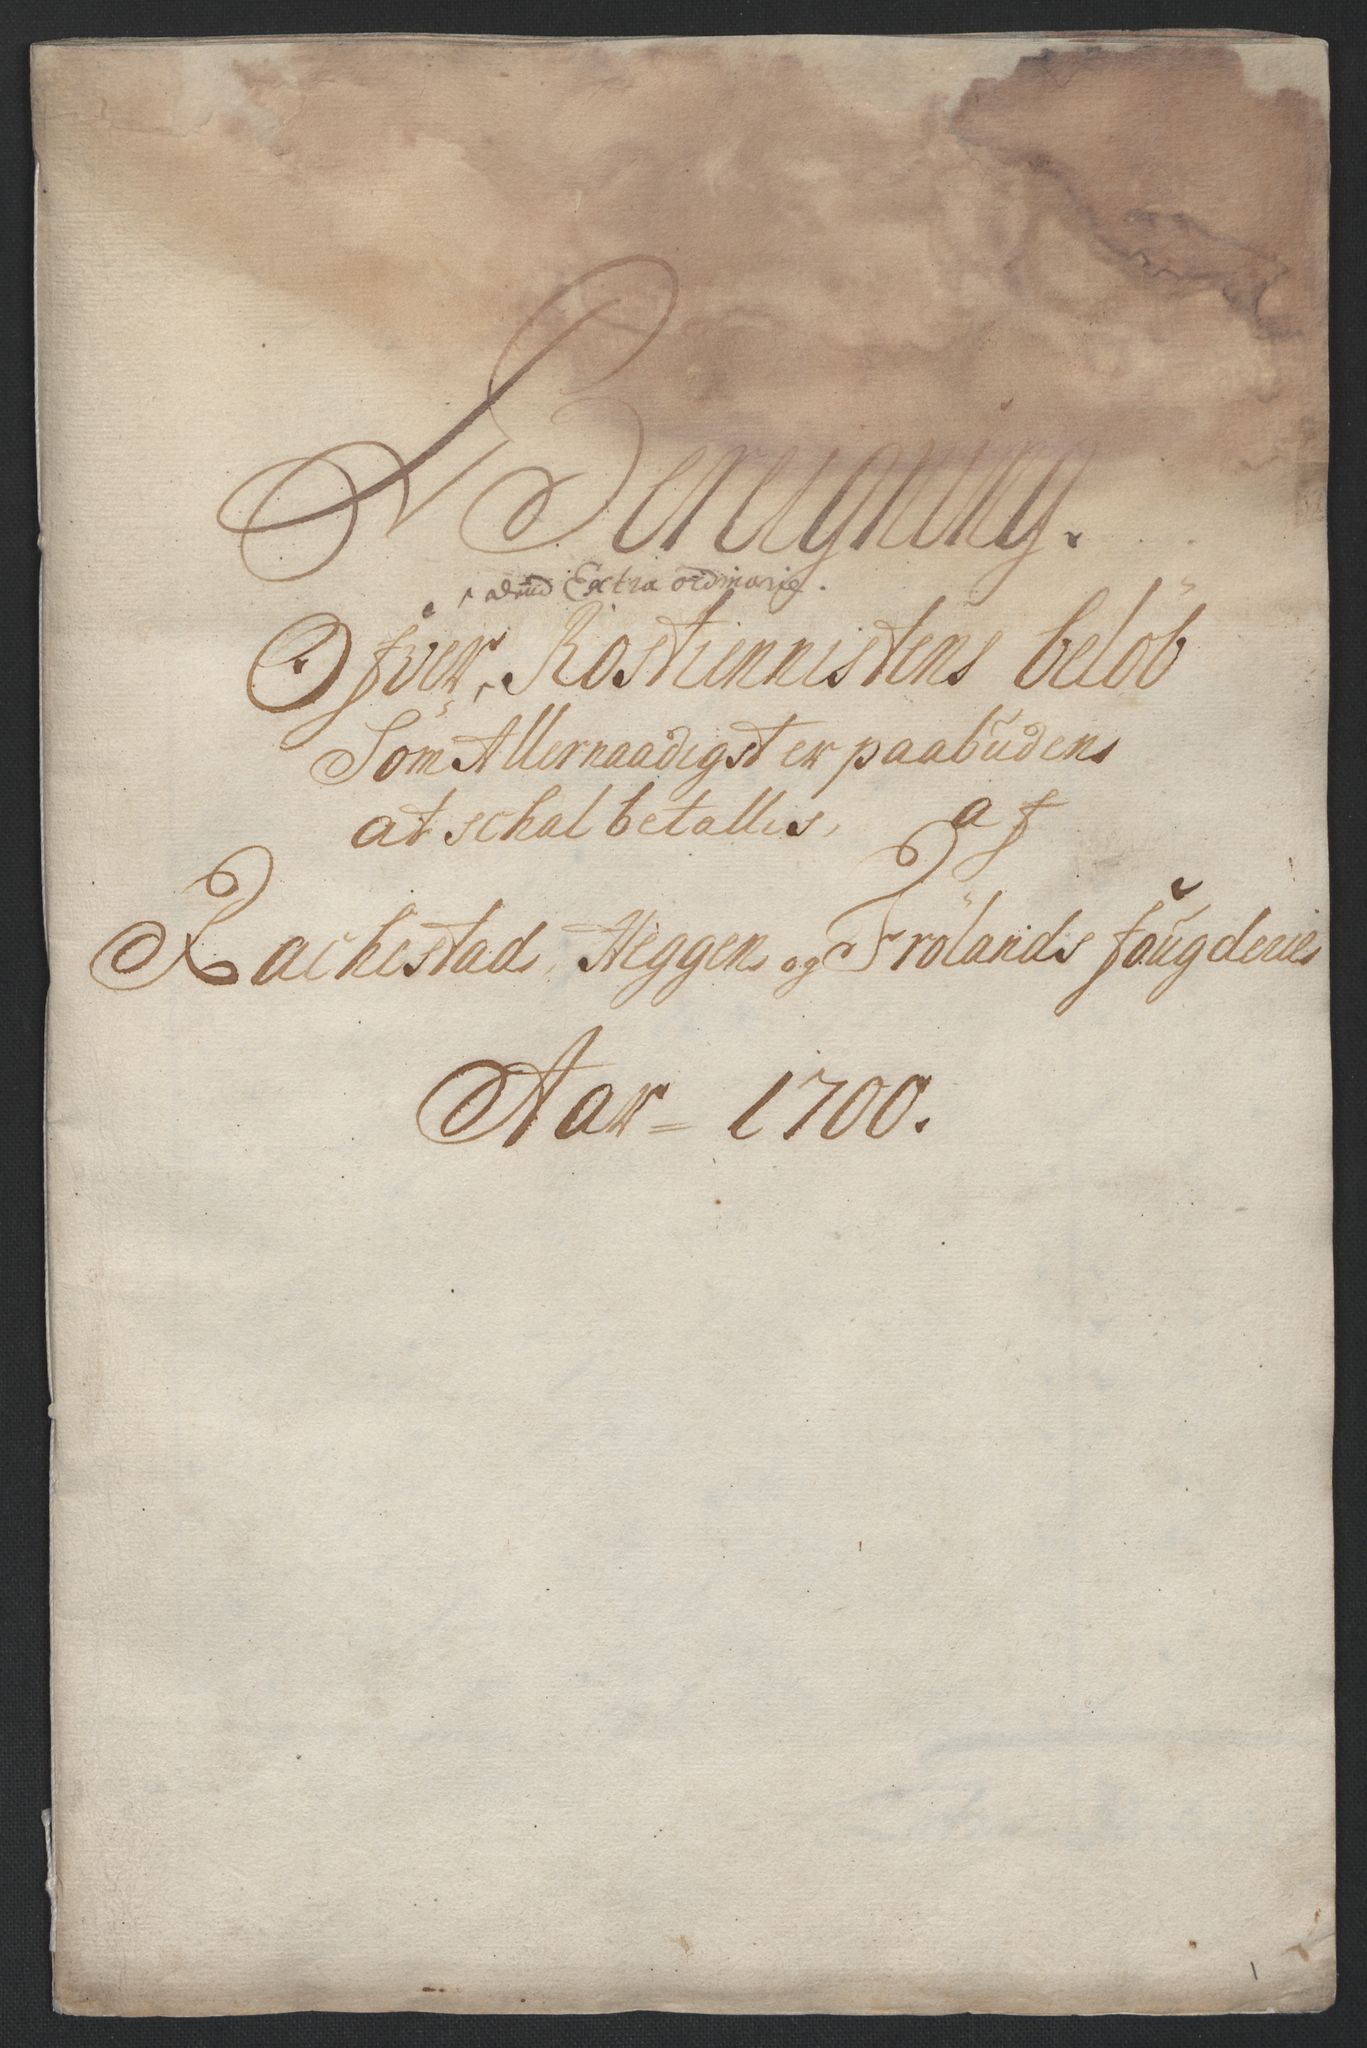 Bereigning.
Extra ordinarie.
Ofver Rostiennistens beløb
Som Allernaadigst er paabudens
at schal betallis, af
Rachestad, Heggen og Frølands fougderie
Aar = 1700.
1